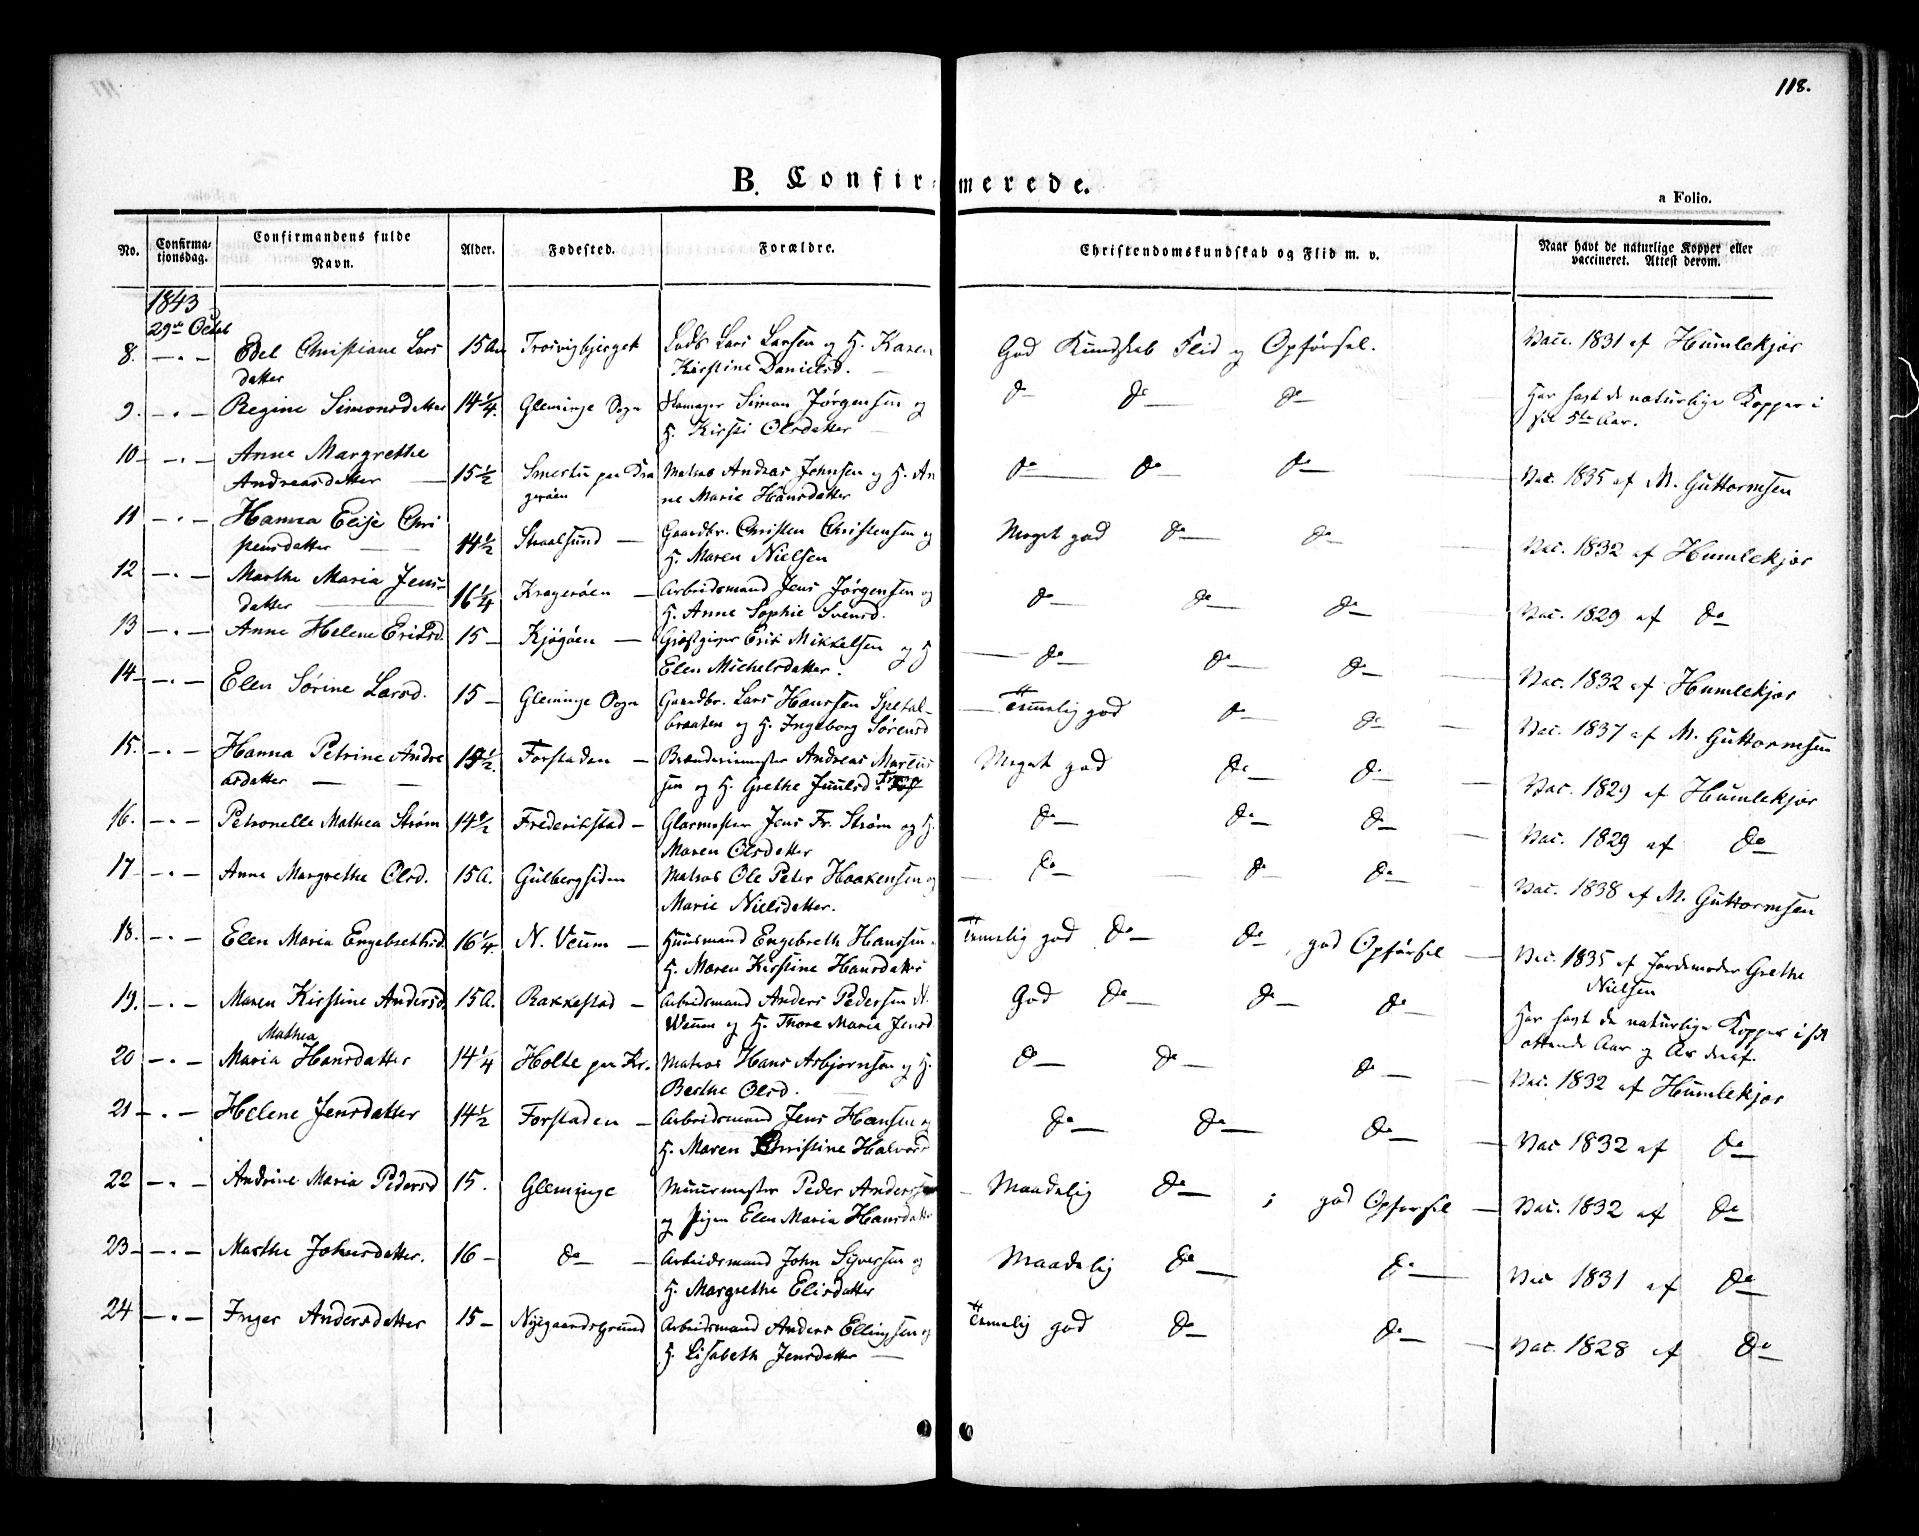 118.
B. Confirmerede.
a Folio.
No. Confirma- tjonsdag. Confirmandens fulde Navn. Alder. Fødested. Forældre. Christendomskundskab og Flid m. v. Naar havt de naturlige Kopper eller vaccineret. Attest derom.
1843
29de Octob
8. — " — Edel Christiane Lars 15 Aar Trosvigbjerget Lods Lars Larsen og H. Karen God Kundskab Flid og Opførsel. Vacc. 1831 af Humlekjør
datter Kirstine Danielsd. —
9. — " — Regine Simonsdatter 14 1/4. Gleminge Sogn Simon Jørgensen og do do do Har havt de naturlige Kopper i
H. Kirsti Olsdatter — sit 5te Aar.
10 — " — Anne Margrethe
Andreasdatter — 15 1/2 Smertu paa Kra Matros Andreas Johnsen og H. An do do do Vac. 1835 af M. Guttormsen
gerøen ne Marie Hansdatter
11 — " — Hanna Elise Chri
stensdatter — 14 1/2 Straalsund — Gaardbr. Christen Christensen og Meget god do do Vac. 1832 af Humlekjør
H. Maren Nielsen
12 — " — Marthe Maria Jens- 16 1/4 Kragerøen — Arbeidsmand Jens Jørgensen og do do do Vac. 1829 af do
datter — H. Anne Sophie Svensd.
13 — " — Anne Helene Eriksd. 15 — Kjøgøen — Gjæstgiver Erik Mikkelsen og H — do do do Vac. 1832 af Humlekjør
Elen Michelsdatter.
14 — " — Elen Sørine Larsd. 15 — Gleminge Sogn Gaardbr. Lars Hanssen Spetal- — Temmelig god do do Vac. 1837 af M. Guttormsen
braaten og H. Ingeborg Sørensd
15. — " — Hanna Petrine Andre 15 1/2. Forstaden — Andreas Marcus Meget god do do Vac. 1829 af Humlekjør
asdatter — sen og H. Grethe Juulsd
16. — " — Petronelle Mathea Strøm 14 1/2 Frederikstad — Glarmester Jens Fr. Strøm og H. do do do Vac. 1829 af do
Maren Olsdatter
17 — " — Anne Margrethe Olsd. 15 A. Gulbergsiden Matros Ole Peter Haakensen og — do do do Vac. 1838 af M. Guttormsen
Marie Nielsdatter.
18. — " — Elen Maria Engebrethsd. 16 1/4. N. Veum — Huusmand Engebreth Hanssen. Temmelig god do do, god Opførsel Vac. 1835 af Jordemoder Grethe
H. Maren Kirstine Hansdatter Nielsen
19. — " — Maren Kirstine Andersd. 15 A. Rakkestad — Arbeidsmand Anders Pedersen N. God do do do Har havt de naturlige Kopper i sit
Mathea Weum og H. Thore Maria Jensd ottende Aar
20 — " — Maria Hansdatter 14 1/4 Holte paa Kr. Matros Hans Asbjørnsen og H. do do do Vac. 1832 af Humlekjør
Berthe Olsd.
21 — " — Helene Jensdatter 14 1/2 Forstaden — Arbeidsmand Jens Hansen og do do do Vac 1832 af do
H. Maren Christine Halvorsd
22 — " — Andrine Maria Pedersd 15. Gleminge Muurmester Peder Anderssen — Maadelig do ; god Opførsel — Vac. 1832 af do
og Pigen Elen Maria Hansdatter
23 — " — Marthe Johnsdatter. 16 — do — Arbeidsmand John Syversen og Maadelig do do Vac 1831 af do
H. Margrethe Elisdatter
24 — " — Inger Andersdatter 15 — Nygaardsgrund Arbeidsmand Anders Ellingsen og Temmelig god do do Vac. 1828 af do
H. Lisabeth Jensdatter —